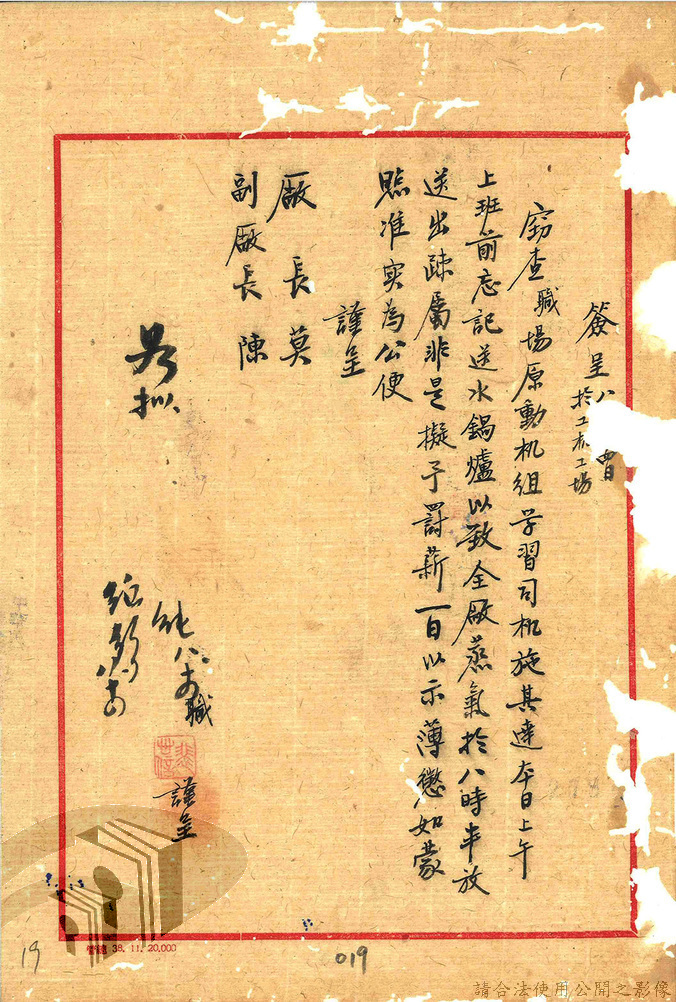 簽呈 八 日
於工木工場
窃查職場原動机組学習司机施其達本日上午
上班前忘記送水鍋爐以致全廠蒸氣於八時半放
送出疎屬非是擬予罰薪一日以示薄懲如蒙
賜准实為公便
謹呈
廠長莫
副廠長陳
職
謹呈
38.11.20,000
19
019
請合法使用公開之影像